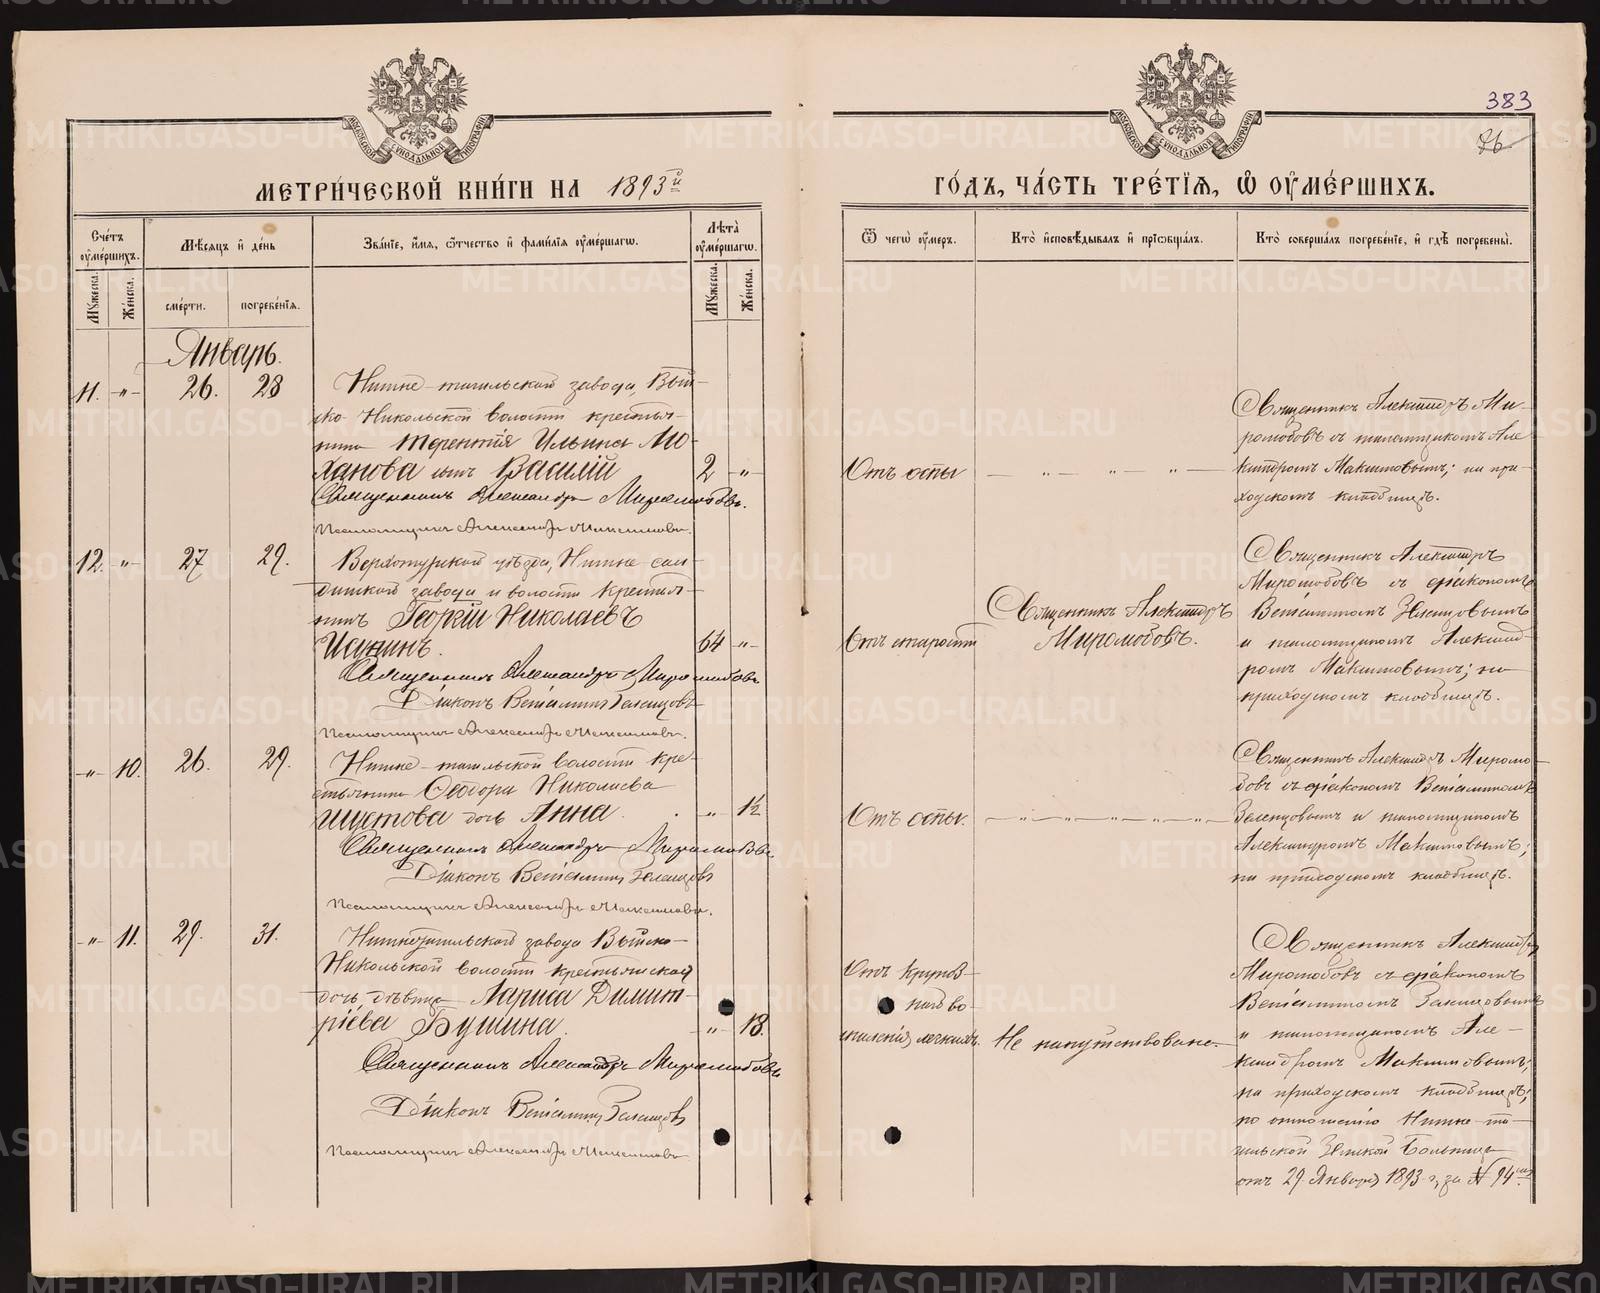 383
26
МОСКОВСКОЙ СѴНОДАЛЬНОЙ ТИПОГРАФІИ
МОСКОВСКОЙ СѴНОДАЛЬНОЙ ТИПОГРАФІИ
МЕТРИ́ЧЕСКОЙ КНИ́ГИ НА 1893й
ГО́ДЪ, ЧА́СТЬ ТРЕ́ТІЯ, Ѿ ОУ҆МЕ́РШИХЪ.
Сче́тъ оу҆ме́ршихъ.
Мѣ́сяцъ и҆ де́нь
Зва́нїе, и҆́мя, ѻ҆́тчество и҆ фами́лїя оу҆ме́ршагѡ.
Лѣта̀ оу҆ме́ршагѡ.
Мꙋ́жеска.
Же́нска.
сме́рти.
погребе́нїя.
Мꙋ́жеска.
Же́нска.
Ѿ чегѡ̀ оу҆́меръ.
Кто̀ и҆сповѣ́дывалъ и҆ прїѡбща́лъ.
Кто̀ соверша́лъ погребе́нїе, и҆ гдѣ̀ погребены̀.
Январь.
11. -"- 26. 28
Нижне-тагильскаго завода, Вый-
ско-Никольской волости крестья-
нина Терентія Ильина Мо-
ханова сынъ Василій 2 -"-
Священникъ Александръ Миролюбовъ.
Псаломщикъ Александръ Максимовъ.
Отъ оспы
Священникъ Александръ Ми-
ролюбовъ съ псаломщикомъ Але
ксандромъ Максимовымъ; на при-
ходскомъ кладбищѣ.
12. -"- 27 29.
Верхотурскаго уѣзда, Нижне-сал-
динскаго завода и волости крестья-
нинъ Георгій Николаевъ
Исунинъ. 64 -"-
Священникъ Александръ Миролюбовъ
Діаконъ Веніаминъ Зеленцовъ
Псаломщикъ Александръ Максимовъ.
Отъ старости
Священникъ Александръ
Миролюбовъ.
Священникъ Александръ
Миролюбовъ съ діакономъ
Веніаминомъ Зеленцовымъ
и псаломщикомъ Алексан-
дромъ Максимовымъ; на
приходскомъ кладбищѣ.
-"- 10. 26. 29.
Нижне-тагильской волости кре-
стьянина Ѳеодора Николаева
Шустова дочь Анна. " 1½
Священникъ Александръ Миролюбовъ.
Діаконъ Веніаминъ Зеленцовъ
Псаломщикъ Александръ Максимовъ.
Отъ оспы.
Священникъ Александръ Миролю-
бовъ съ діакономъ Веніаминомъ
Зеленцовымъ и псаломщикомъ
Александромъ Максимовымъ;
на приходскомъ кладбищѣ.
-"- 11. 29. 31.
Нижнетагильскаго завода Выйско-
Никольской волости крестьянская
дочь, дѣвица Лариса Димит-
ріева Бушина. -"- 18.
Священникъ Александръ Миролюбовъ
Діаконъ Веніаминъ Зеленцовъ
Псаломщикъ Александръ Максимовъ
Отъ крупоз-
наго во-
спаленія легкихъ.
Не напутствована.
Священникъ Александръ
Миролюбовъ съ діакономъ
Веніаминомъ Зеленцовымъ
и псаломщикомъ Але-
ксандромъ Максимовымъ;
на приходскомъ кладбищѣ;
по отношенію Нижне-та-
гильской Земской больницы
отъ 29 Января 1893 г. за № 94
METRIKI.GASO-URAL.RU